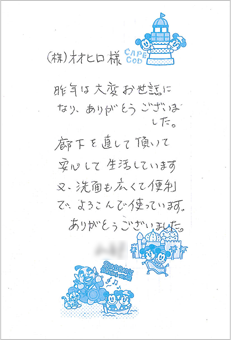 CAPE COD
(株)ネオヒロ 様
昨年は大変お世話に
なり、ありがとうございま
した。
廊下を直して頂いて
安心して生活しています
又、洗面も広くて便利
で、よろこんで使っています。
ありがとうございました。